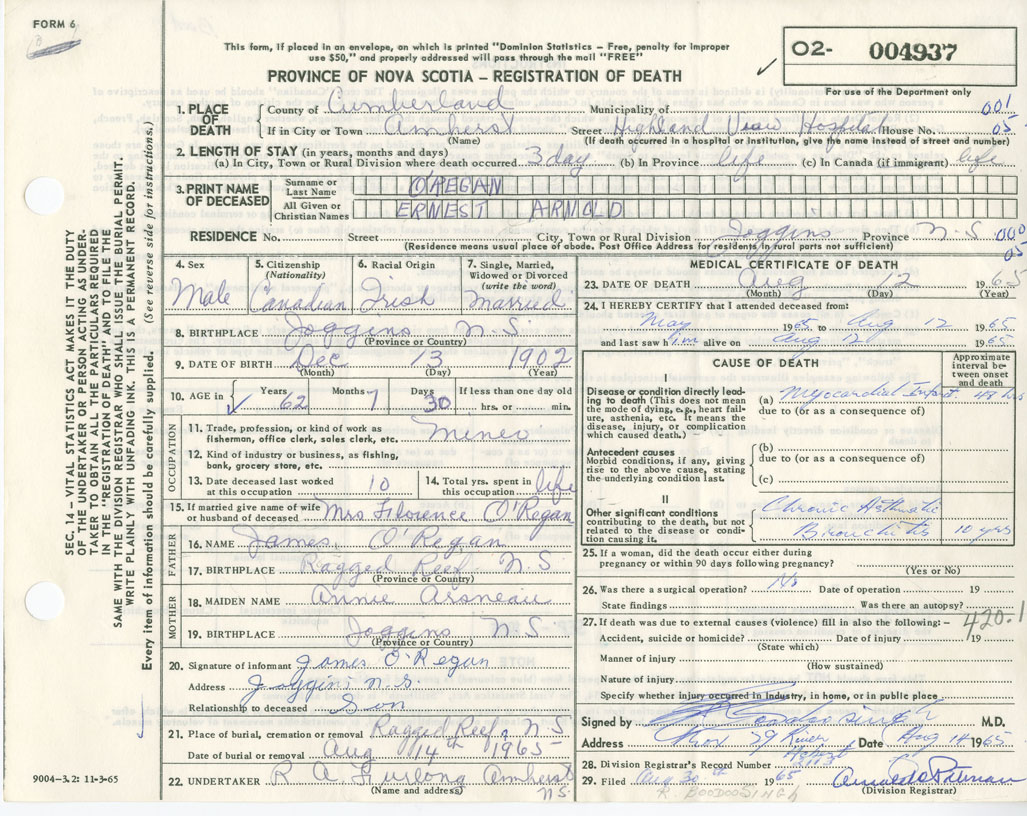 FORM 6
This form, if placed in an envelope, on which is printed "Dominion Statistics – Free, penalty for improper
use $50," and properly addressed will pass through the mail "FREE"
PROVINCE OF NOVA SCOTIA – REGISTRATION OF DEATH
O2- 004937
For use of the Department only
1. PLACE OF DEATH
County of Cumberland Municipality of 001
If in City or Town Amherst Street Highland View Hospital House No. 05
(Name) (If death occurred in a hospital or institution, give the name instead of street and number)
2. LENGTH OF STAY (in years, months and days)
(a) In City, Town or Rural Division where death occurred 3 day (b) In Province life (c) In Canada (if immigrant) life
3. PRINT NAME OF DECEASED
Surname or Last Name O'REGAN
All Given or Christian Names ERNEST ARNOLD
RESIDENCE No. Street City, Town or Rural Division Joggins Province N.S. 000
(Residence means usual place of abode. Post Office Address for residents in rural parts not sufficient) 05
4. Sex Male
5. Citizenship (Nationality) Canadian
6. Racial Origin Irish
7. Single, Married, Widowed or Divorced (write the word) Married
8. BIRTHPLACE Joggins N.S.
(Province or Country)
9. DATE OF BIRTH Dec 13 1902
(Month) (Day) (Year)
10. AGE in Years 62 Months 7 Days 30 If less than one day old
hrs. or min.
OCCUPATION
11. Trade, profession, or kind of work as
fisherman, office clerk, sales clerk, etc. Miner
12. Kind of industry or business, as fishing,
bank, grocery store, etc.
13. Date deceased last worked
at this occupation 10
14. Total yrs. spent in
this occupation life
15. If married give name of wife
or husband of deceased Mrs Florence O'Regan
FATHER
16. NAME James O'Regan
17. BIRTHPLACE Ragged Reef N.S
(Province or Country)
MOTHER
18. MAIDEN NAME Annie
19. BIRTHPLACE Joggins N.S.
(Province or Country)
20. Signature of informant James O'Regan
Address Joggins N.S.
Relationship to deceased Son
21. Place of burial, cremation or removal Ragged Reef, N.S
Date of burial or removal Aug 14th 1965
22. UNDERTAKER R A Furlong Amherst
(Name and address) N.S.
MEDICAL CERTIFICATE OF DEATH
23. DATE OF DEATH Aug 12 1965
(Month) (Day) (Year)
24. I HEREBY CERTIFY that I attended deceased from:
May 1965 to Aug 12 1965
and last saw him alive on Aug 12 1965
CAUSE OF DEATH
Approximate interval between onset and death
I
Disease or condition directly leading to death (This does not mean
the mode of dying, e.g., heart failure, asthenia, etc. It means the
disease, injury, or complication
which caused death.)
(a) Myocardial Infarct. 48 hrs
due to (or as a consequence of)
Antecedent causes
Morbid conditions, if any, giving
rise to the above cause, stating
the underlying condition last.
(b)
due to (or as a consequence of)
(c)
II
Other significant conditions
contributing to the death, but not
related to the disease or condition causing it.
Chronic Asthmatic
Bronchitis 10 yrs
25. If a woman, did the death occur either during
pregnancy or within 90 days following pregnancy?
(Yes or No)
26. Was there a surgical operation? No Date of operation 19
State findings Was there an autopsy?
27. If death was due to external causes (violence) fill in also the following: – 420.1
Accident, suicide or homicide? Date of injury 19
(State which)
Manner of injury
(How sustained)
Nature of injury
Specify whether injury occurred in industry, in home, or in public place
Signed by M.D.
Address Box 29 River Hebert Date Aug 14 1965
28. Division Registrar's Record Number
29. Filed Aug 30th 1965
(Division Registrar)
R. BOODOOSINGH
9004-3.2: 11-3-65
SEC. 14 – VITAL STATISTICS ACT MAKES IT THE DUTY
OF THE UNDERTAKER OR PERSON ACTING AS UNDER-
TAKER TO OBTAIN ALL THE PARTICULARS REQUIRED
IN THE "REGISTRATION OF DEATH" AND TO FILE THE
SAME WITH THE DIVISION REGISTRAR WHO SHALL ISSUE THE BURIAL PERMIT.
WRITE PLAINLY WITH UNFADING INK. THIS IS A PERMANENT RECORD.
Every item of information should be carefully supplied. (See reverse side for instructions.)